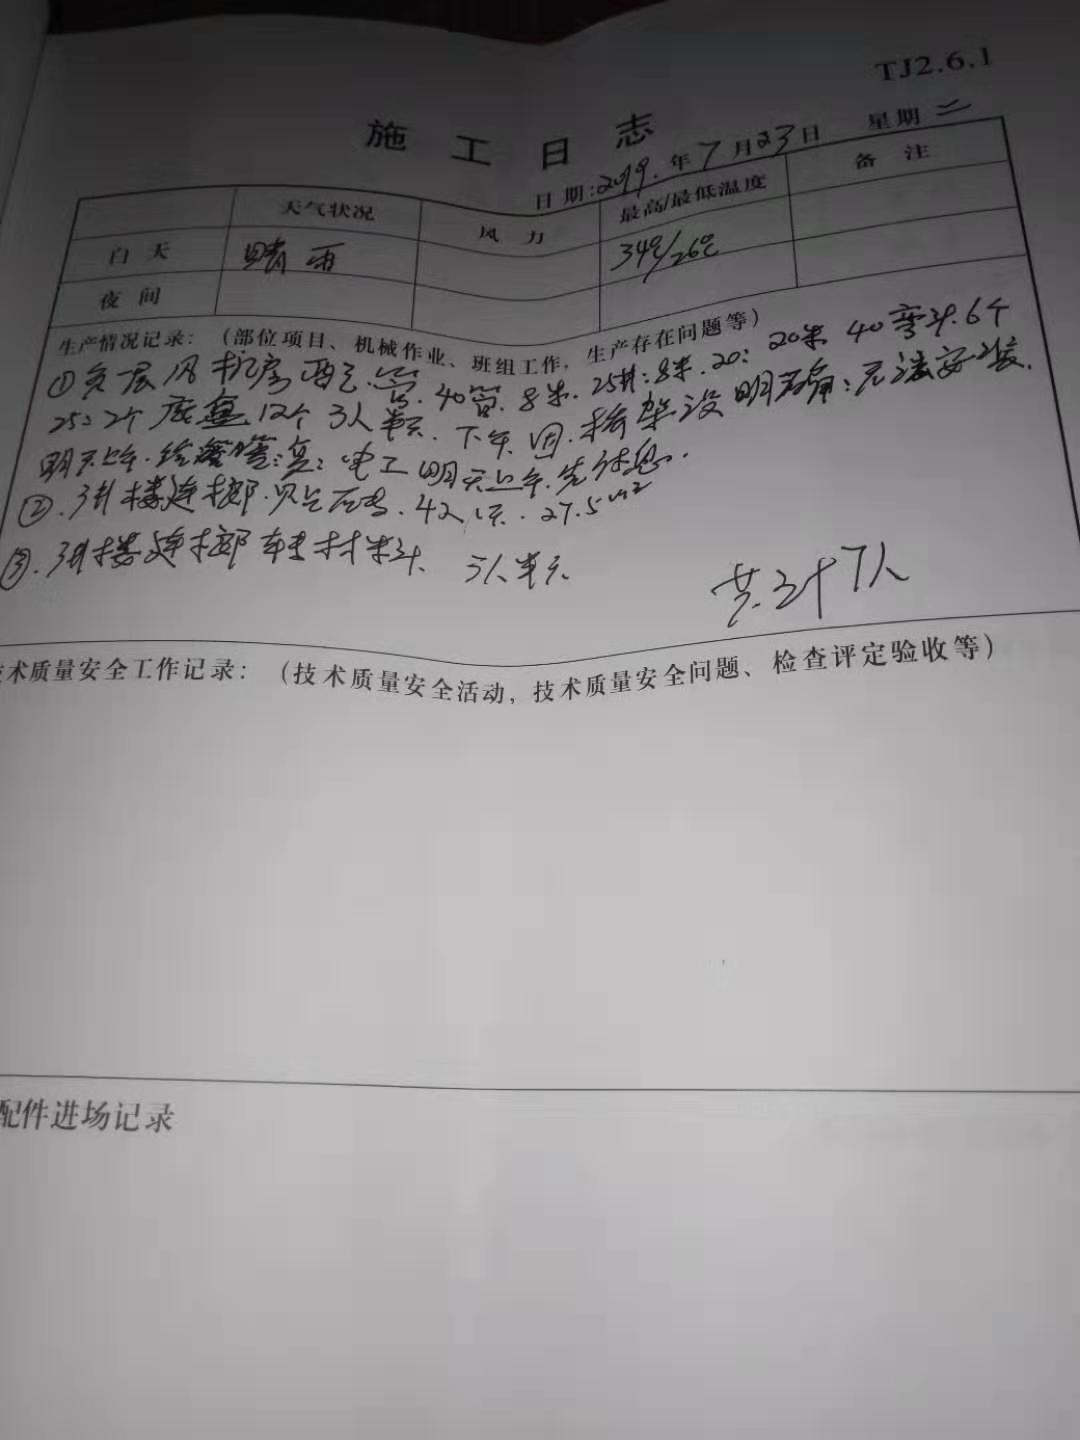 TJ2.6.1
施工日志
日期:2019.年7月23日 星期二
天气状况 风力 最高/最低温度 备注
白天 晴 雨 34℃/26℃
夜间
生产情况记录：（部位项目、机械作业、班组工作，生产存在问题等）
①负一层风机房配管.40管.8米.25#:8米.20:20米 40弯头.6个
25:2个 底盒12个 3人 下午.因.桥架没明确:无法安装.
明天上午.给:电工明天上午先休息.
②.3#楼连廊. 27.5m²
③.3#楼连廊 材料. 3人半天
共计7人
术质量安全工作记录：（技术质量安全活动，技术质量安全问题、检查评定验收等）
配件进场记录